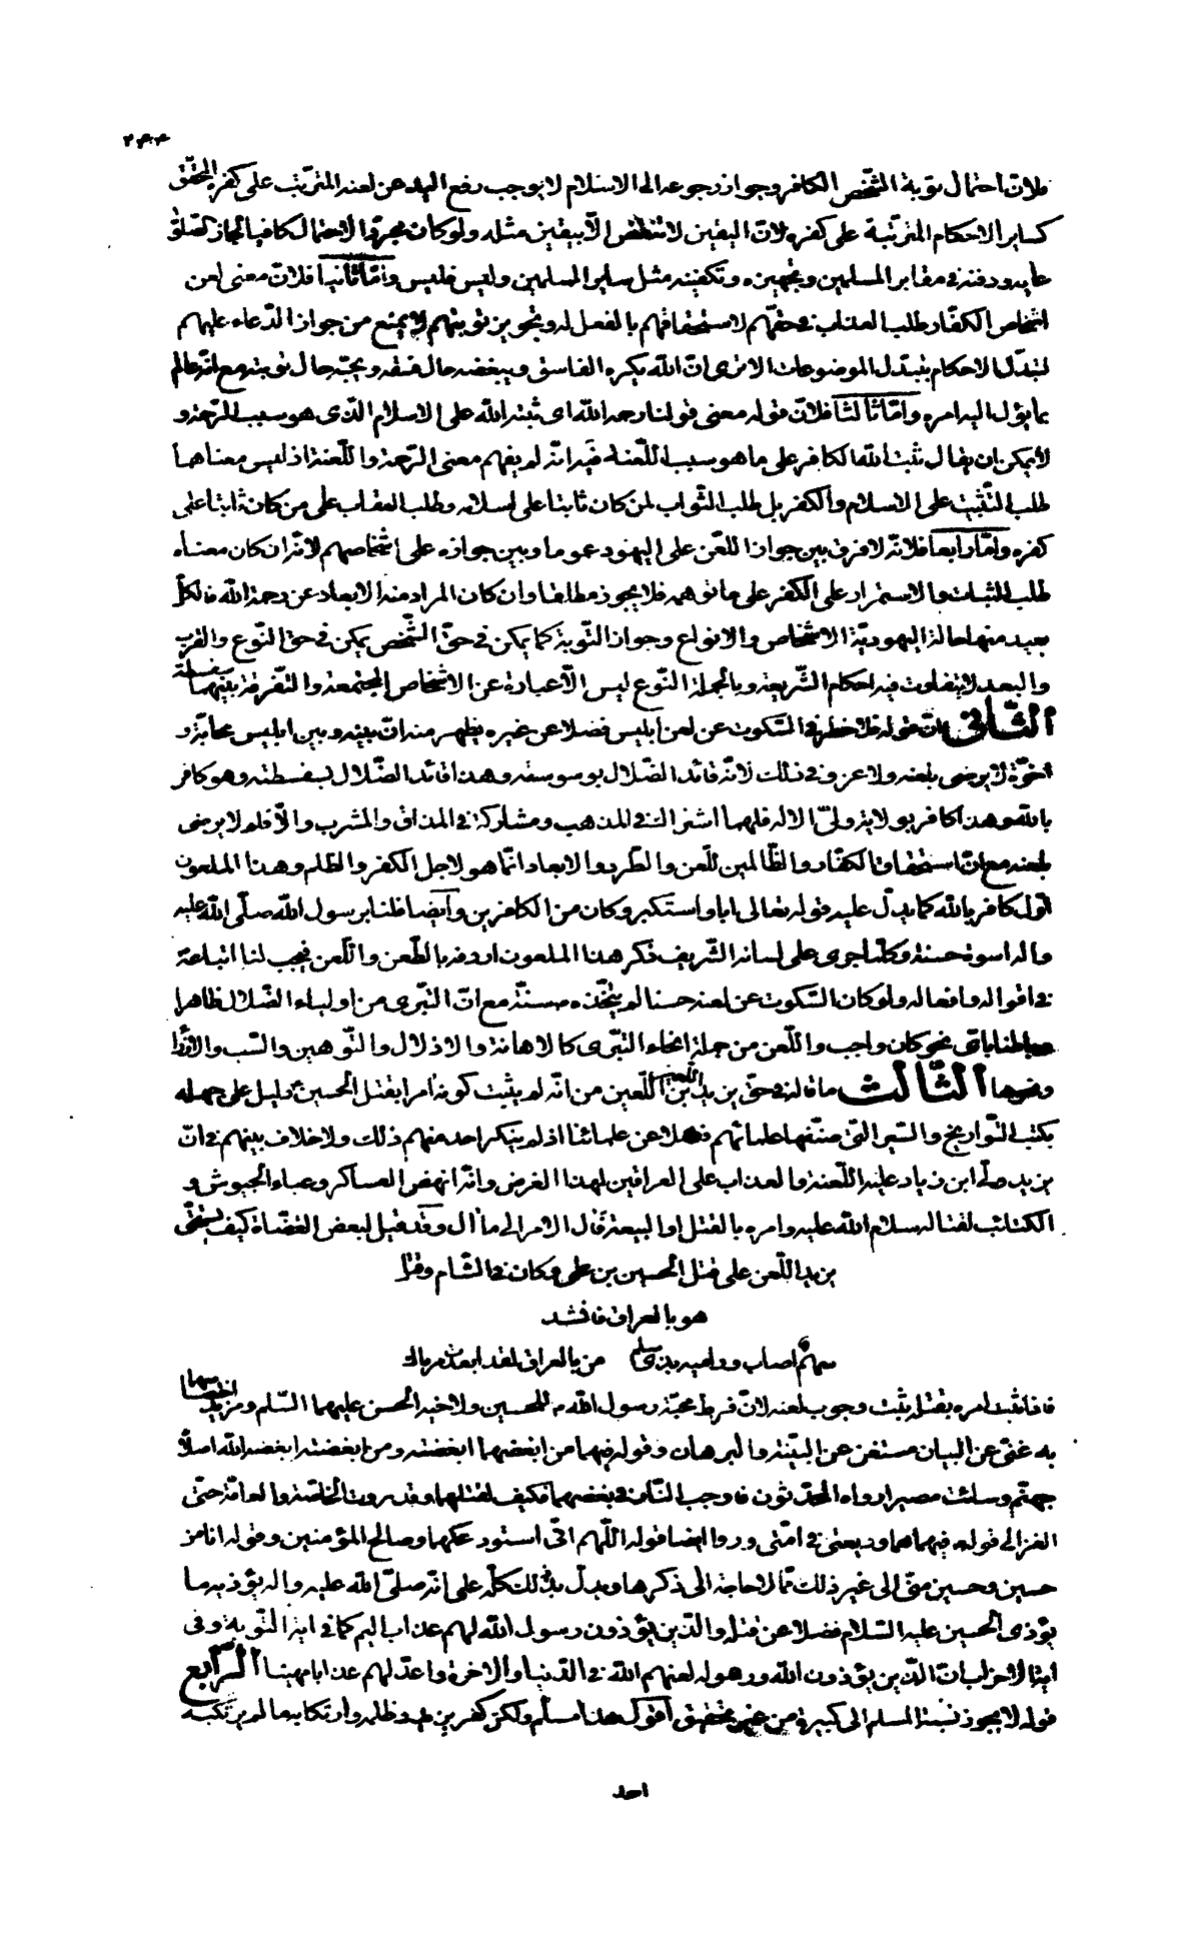 ۲۴۴
فلانّ احتمال توبة الشّخص الكافر وجواز رجوعه الى الاسلام لا يوجب رفع اليد عن لعنه المترتّب على كفره المحقّق
كساير الاحكام المترتبة على كفره لانّ اليقين لا تنقض الّا بيقين مثله ولو كان مجرّد الاحتمال كافيا لجاز الصّلوة
عليه ودفنه فى مقابر المسلمين وتجهيزه وتكفينه مثل ساير المسلمين وليس فليس وامّا ثانيا فلانّ معنى لعن
اشخاص الكفّار طلب العذاب فى حقّهم لاستحقاقهم بالفعل له وتجويز توبتهم لا يمنع من جواز الدّعاء عليهم
لتبدّل الاحكام بتبدّل الموضوعات الا ترى انّ الله يكره الفاسق ويبغضه حال فسقه ويحبّه حال توبته مع انّه عالم
بما يؤل اليه امره وامّا ثالثا فلانّ قوله معنى قولنا رحمه الله اى ثبته الله على الاسلام الذى هو سبب الرّحمة و
لا يمكن ان يقال ثبت الله الكافر على ما هو سبب اللّعنة فيه انّه لم يفهم معنى الرّحمة واللّعنة اذ ليس معناهما
طلب التّثبت على الاسلام والكفر بل طلب الثّواب لمن كان ثابتا على اسلامه وطلب العقاب على من كان ثابتا على
كفره وامّا رابعا فلانّه لا فرق بين جواز اللّعن على اليهود عموما وبين جوازه على اشخاصهم لانّه ان كان معناه
طلب الثبات والاستمرار على الكفر على ما توهمه فلا يجوز مطلقا وان كان المراد منه الابعاد عن رحمة الله فالكلّ
بعيد منها حالة اليهوديّة الاشخاص والانواع وجواز التّوبة كما يمكن فى حقّ الشّخص يمكن فى حقّ النّوع والقرب
والبعد لا يتفاوت فيه احكام الشّريعة وبالجملة النّوع ليس الّا عبارة عن الاشخاص المجتمعة والتّفرقة بينهما سفسطة
الثّانى انّ قوله فلا خطر فى السّكوت عن لعن ابليس فضلا عن غيره يظهر منه انّ بينه وبين ابليس محابّة و
اخوّة لا يرضى بلعنه ولا غرو فى ذلك لانّه قائد الضّلال بوسوسته وهذا قائد الضّلال بسفسطته وهو كافر
بالله وهذا كافر بولاية ولىّ الاله فلهما اشتراك فى المذهب ومشاركة فى المذاق والمشرب والّا فلم لا يرضى
بلعنه مع انّ استحقاق الكفّار والظّالمين للّعن والطّرد والابعاد انّما هو لاجل الكفر والظلم وهذا الملعون
اوّل كافر بالله كما يدلّ عليه قوله تعالى ابا واستكبر وكان من الكافرين وايضا فلنا برسول الله صلّى الله عليه
واله اسوة حسنة وكلّما جرى على لسانه الشّريف ذكر هذا الملعون اردفه بالطّعن واللّعن فيجب لنا اتباعه
فى اقواله وافعاله ولو كان السّكوت عن لعنه حسنا لم يتّخذه سنّة مع انّ التبّرى من اولياء الضّلال ظاهرا
وباطنا باىّ نحو كان واجب واللّعن من جملة انحاء التبّرى كالاهانة والاذلال والتّوهين والسّب والافتراء
ونحوها الثّالث ما قاله فى حقّ يزيد اللّعين من انّه لم يثبت كونه امرا بقتل الحسين دليل على جهله
بكتب التّواريخ والسّير الّتى صنّفها علمائهم فضلا عن علمائنا اذ لم ينكر احد منهم ذلك ولا خلاف بينهم فى انّ
يزيد ولّى ابن زياد عليه اللّعنة والعذاب على العراقين لهذا الغرض وانّه انهض العساكر وعباء الجيوش و
الكتائب لقتاله سلام الله عليه وامره بالقتل او البيعة فال الامر الى ما ال وقد قيل لبعض القضاة كيف يستحقّ
يزيد اللّعن على قتل الحسين بن على وكان فى الشّام وقتل
هو بالعراق فانشد
سهم اصاب وراميه بذى سلم من بالعراق لقد ابعدت مرماك
فاذا ثبت امره بقتله ثبت وجوب لعنه لانّ فرط محبّة رسول الله ص للحسين ولاخيه الحسن عليهما السّلم ومزيد اختصاصهما
به غنىّ عن البيان مستغن عن البيّنة والبرهان وقوله فيهما من ابغضهما ابغضته ومن ابغضته ابغضه الله اصلاه
جهنّم وساءت مصيرا رواه المحدّثون فاوجب النّار فى بغضهما فكيف لقتلهما وقد روت الخاصّة والعامّة حتّى
الغزالى قوله فيهما هما وديعتى فى امّتى وروا ايضا قوله اللّهمّ انّى استودعكهما وصالح المؤمنين وقوله انا من
حسين وحسين منّى الى غير ذلك ممّا لا حاجة الى ذكرها ويدلّ ذلك كلّه على انّه صلّى الله عليه واله يؤذيه ما
يؤذى الحسين عليه السّلام فضلا عن قتله والّذين يؤذون رسول الله لهم عذاب اليم كما فى اية التّوبة وفى
اية الاحزاب انّ الّذين يؤذون الله ورسوله لعنهم الله فى الدّنيا والاخرة واعدّ لهم عذابا مهينا الرّابع
قوله لا يجوز نسبة المسلم الى كبيرة من غير تحقيق اقول هذا مسلّم ولكن كفر يزيد وظلمه وارتكابه ما لم يرتكبه
احد